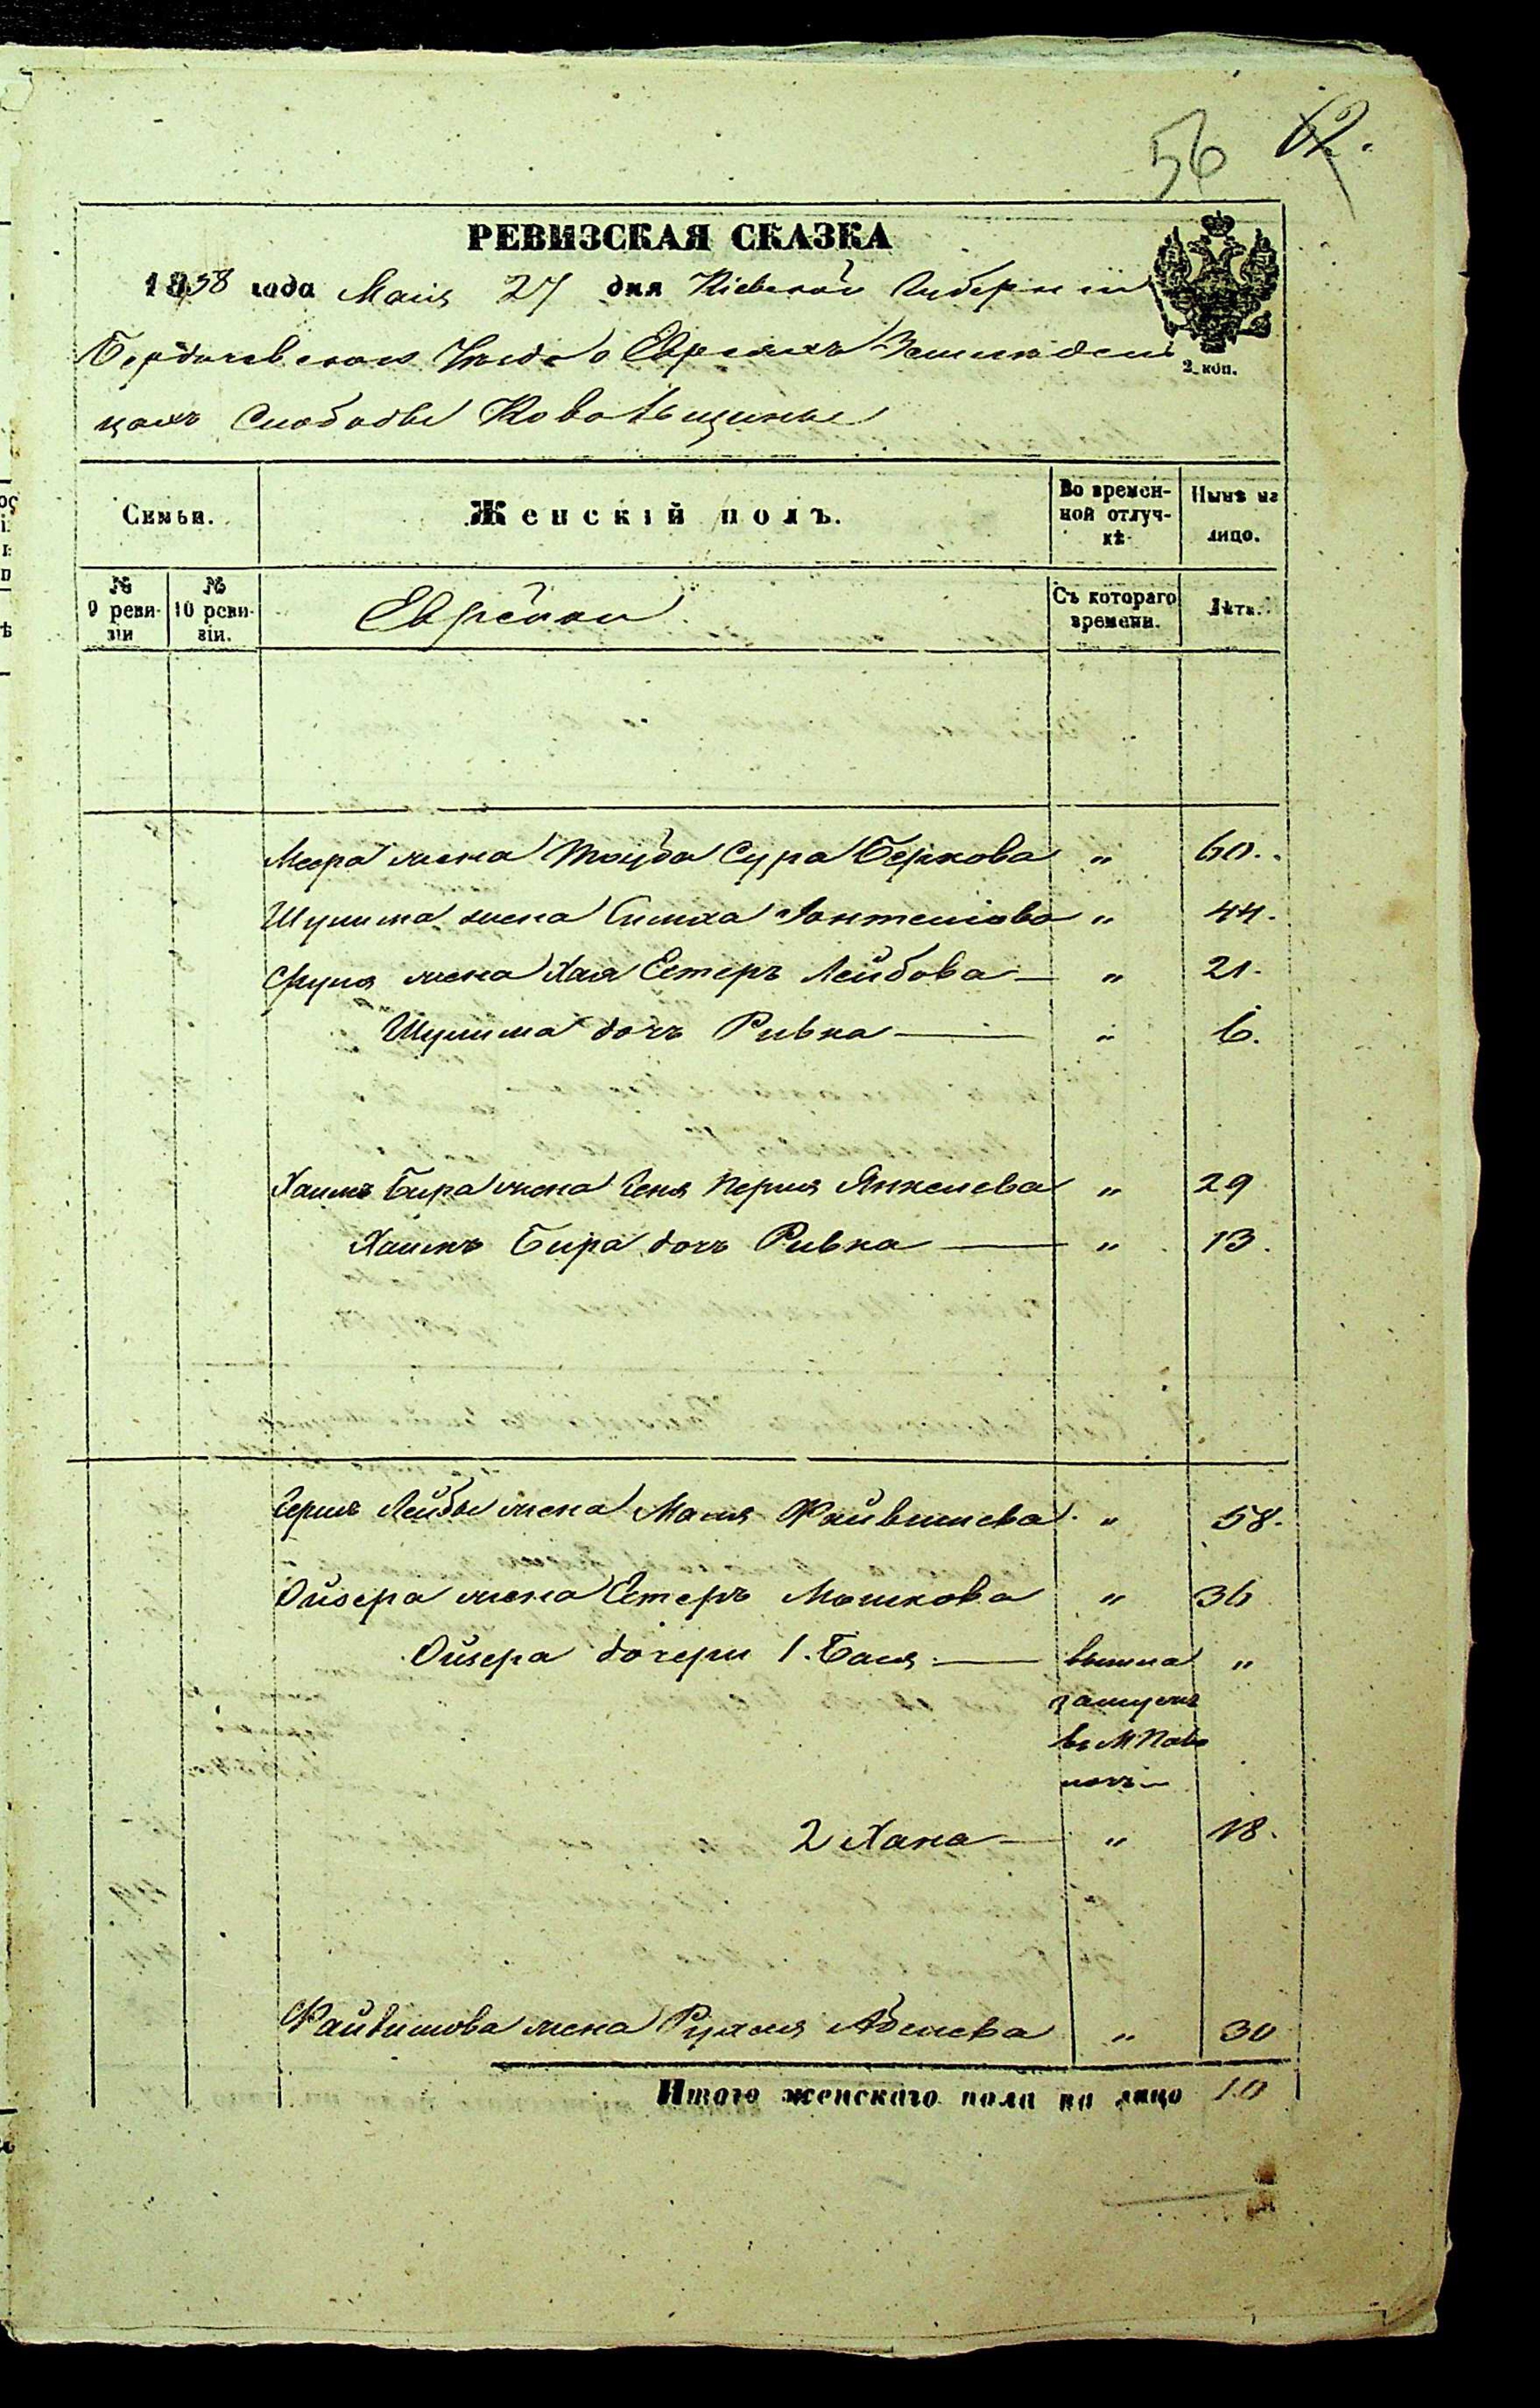 56 62.
РЕВИЗСКАЯ СКАЗКА
1858 года Маія 27 дня Кіевской Губерніи
Бердичевскаго Уезда о Евреяхъ Землядель
2 коп.
цахъ Слободы Ковальщины
Семьи. Женскій полъ. Во времен- Нынѣ на
ной отлуч- лицо.
кѣ
№ № Еврейки Съ котораго Лѣта.
9 реви- 10 реви- времени.
зіи зіи.
Меера жена Тауба Сура Беркова " 60.
Шулима жена Симха " 44.
Сруля жена Хая Естеръ Лейбова — " 21.
Шулима дочь Ривка — " 6.
Хаимъ Бира жена Геня Перля Янкелева " 29
Хаимъ Бира дочь Ривка — " 13.
Гершъ Лейбы жена Маля Файвишева " 58.
Ойзера жена Естеръ Мошкова " 36
Ойзера дочери 1. Бася — вышла "
замужъ
въ М Паво
лочь
2 Хана — " 18.
Файвишова жена Рухля Абелева " 30
Итого женскаго пола на лицо 10